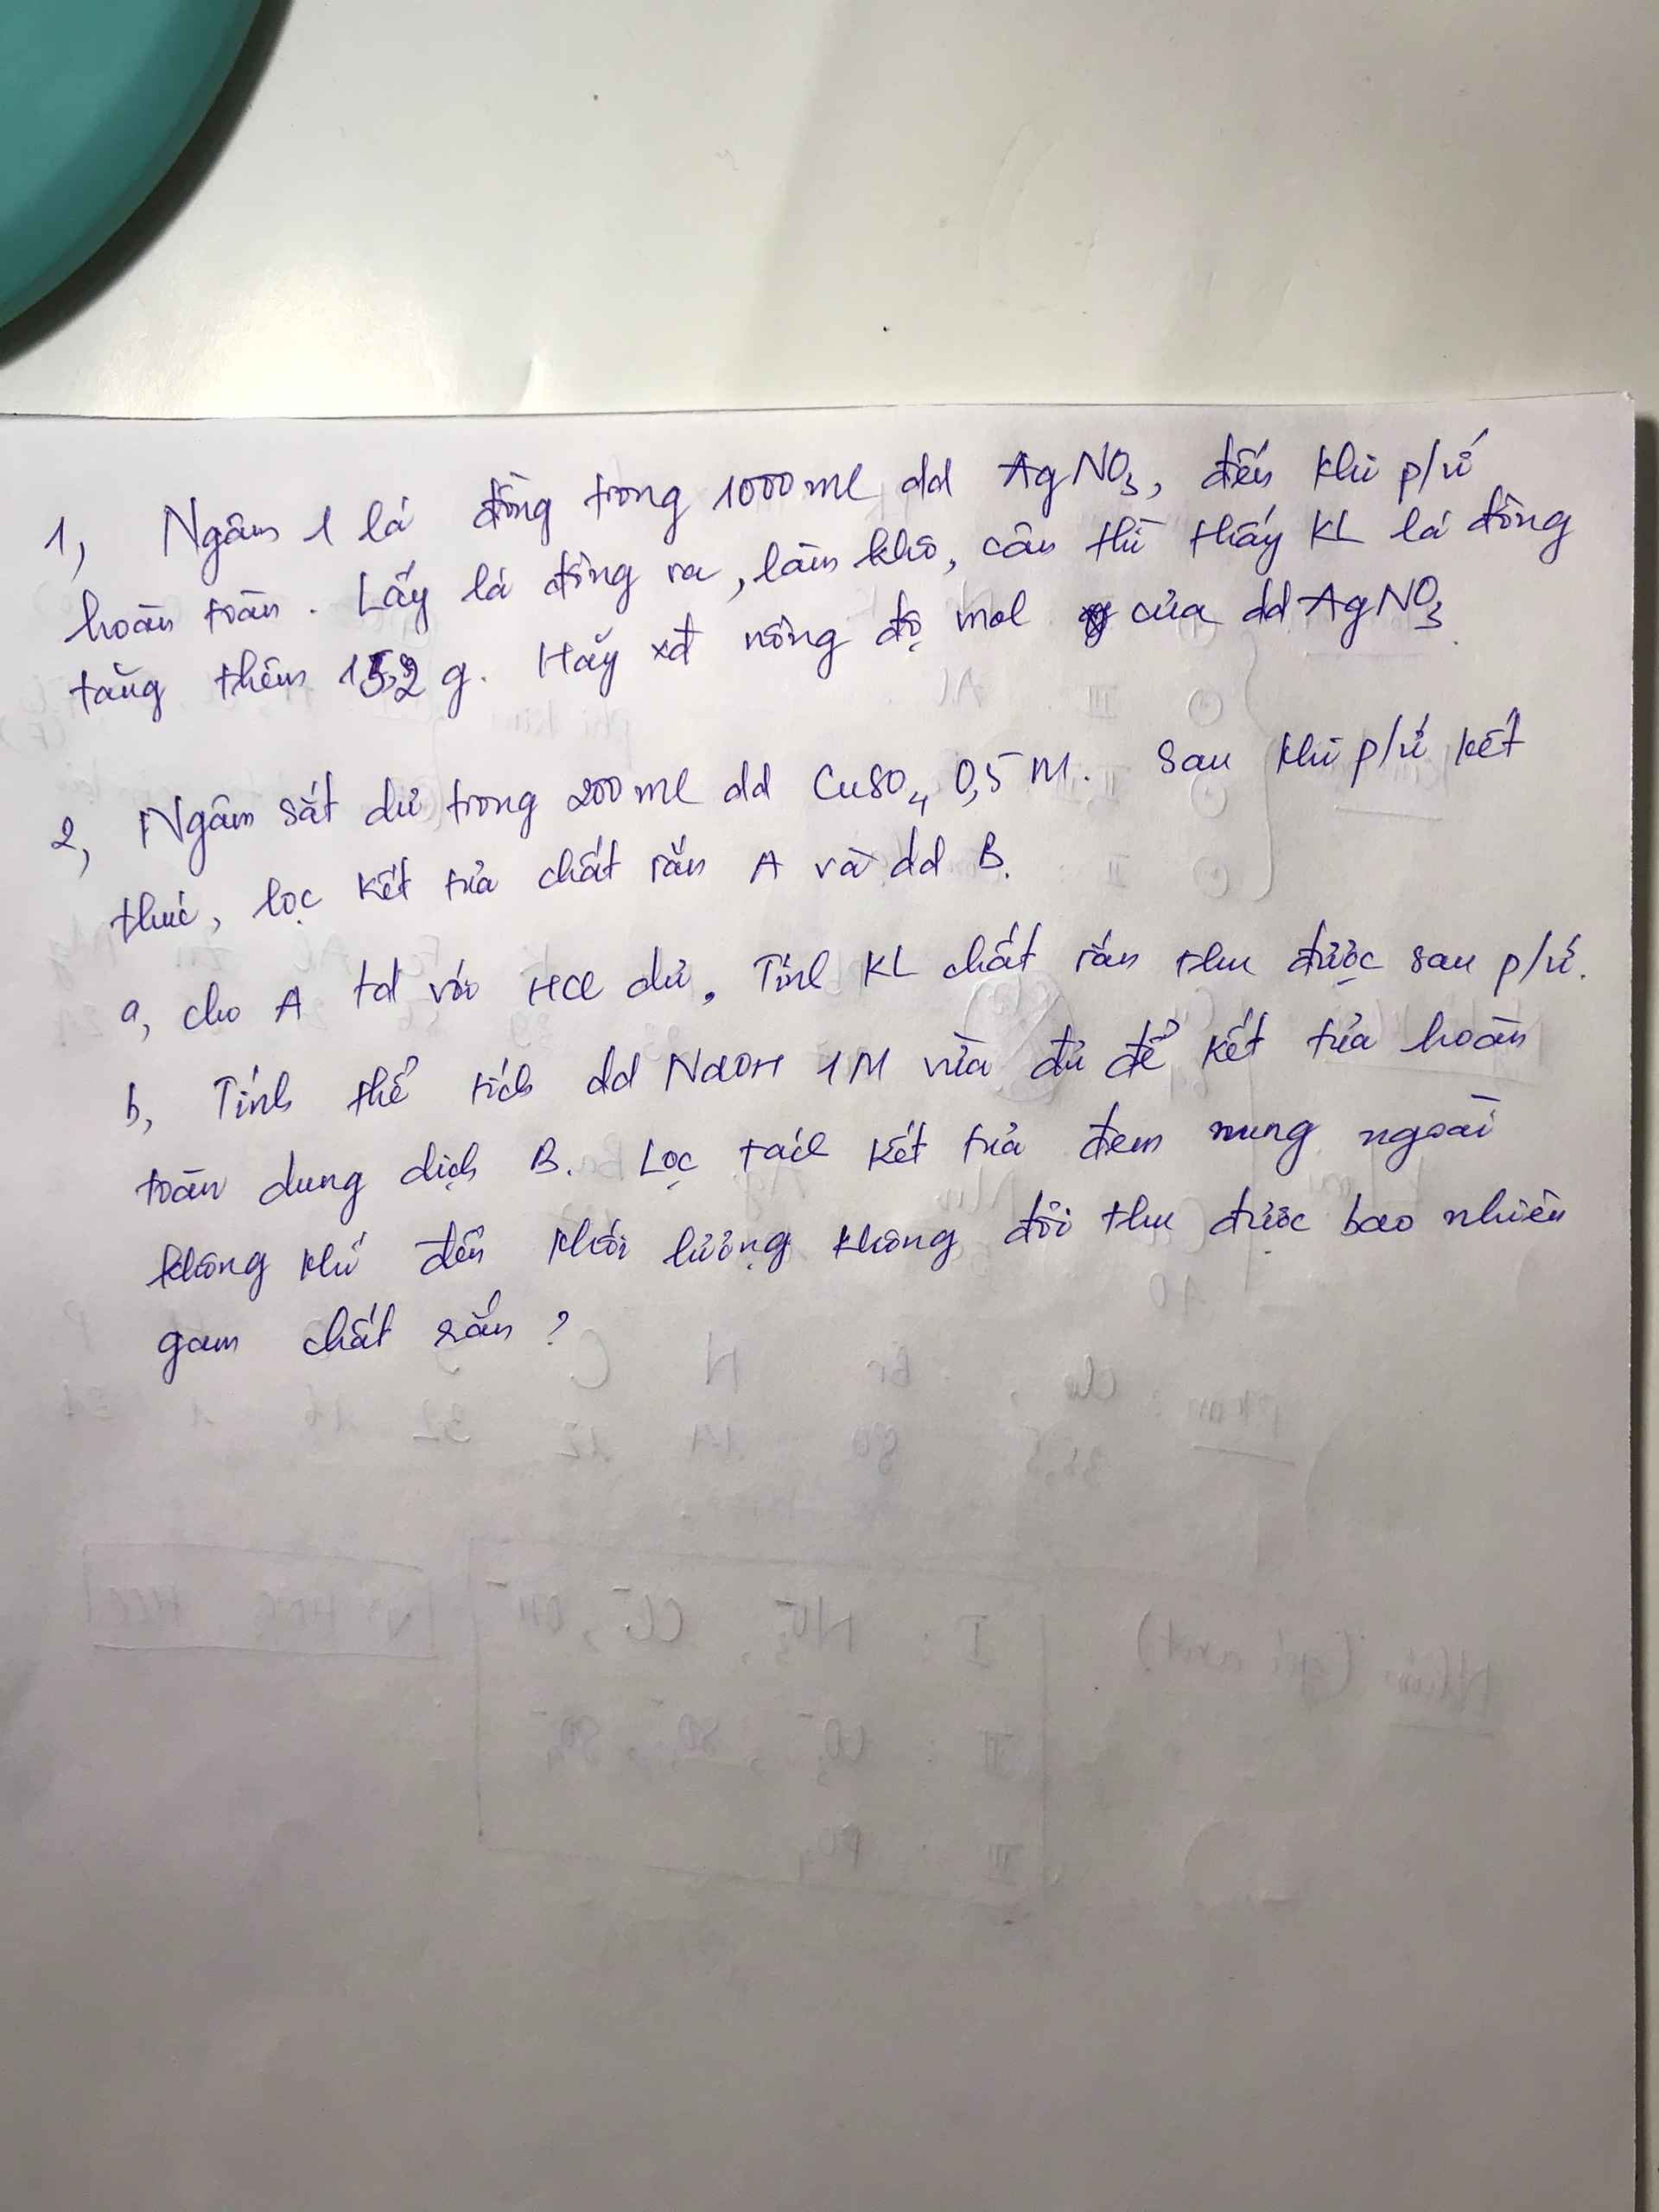 1, Ngâm 1 lá đồng trong 1000 ml dd AgNO3, đến khi p/ứ
hoàn toàn. Lấy lá đồng ra, làm khô, cân thì thấy KL lá đồng
tăng thêm 15,2 g. Hãy xđ nồng độ mol của dd AgNO3.
2, Ngâm sắt dư trong 200 ml dd CuSO4 0,5 M. Sau khi p/ứ kết
thúc, lọc kết tủa chất rắn A và dd B.
a, cho A td với HCl dư. Tính KL chất rắn thu được sau p/ứ.
b, Tính thể tích dd NaOH 1M vừa đủ để kết tủa hoàn
toàn dung dịch B. Lọc tách kết tủa đem nung ngoài
không khí đến khối lượng không đổi thu được bao nhiên
gam chất rắn ?